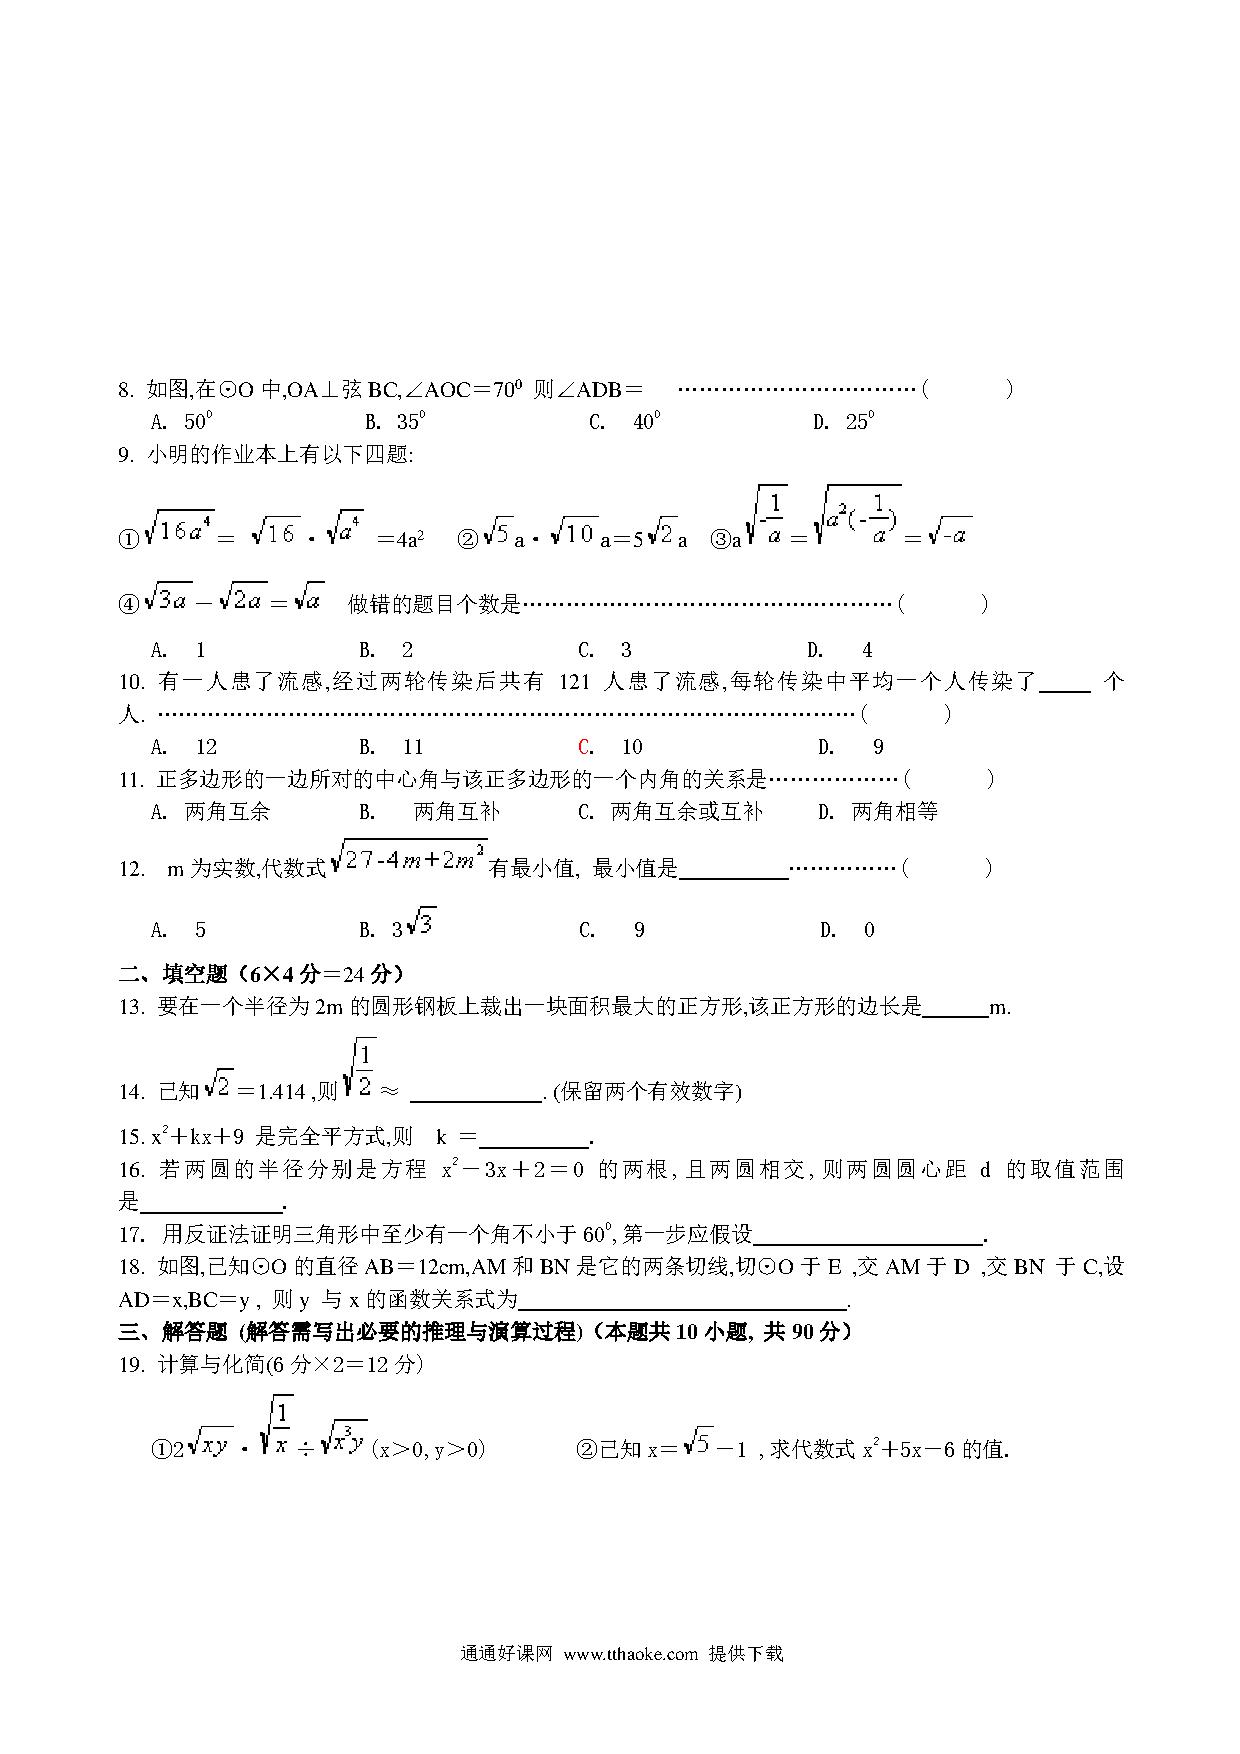 8. 如图,在⊙O 中,OA⊥弦 BC,∠AOC＝70⁰ 则∠ADB＝ ……………………………( )
A. 50⁰ B. 35⁰ C. 40⁰ D. 25⁰
9. 小明的作业本上有以下四题:
①√(16a⁴)＝ √16 · √(a⁴) ＝4a² ② √5 a · √10 a＝5√2 a ③a√(-1/a)＝√(a²(-1/a))＝√(-a)
④√(3a)－√(2a)＝√a 做错的题目个数是……………………………………………( )
A. 1 B. 2 C. 3 D. 4
10. 有一人患了流感,经过两轮传染后共有 121 人患了流感,每轮传染中平均一个人传染了_____ 个
人. ……………………………………………………………………………………( )
A. 12 B. 11 C. 10 D. 9
11. 正多边形的一边所对的中心角与该正多边形的一个内角的关系是………………( )
A. 两角互余 B. 两角互补 C. 两角互余或互补 D. 两角相等
12. m 为实数,代数式√(27-4m+2m²)有最小值, 最小值是__________……………( )
A. 5 B. 3√3 C. 9 D. 0
二、填空题（6×4 分＝24 分）
13. 要在一个半径为 2m 的圆形钢板上裁出一块面积最大的正方形,该正方形的边长是______m.
14. 已知√2＝1.414 ,则√(1/2) ≈ ____________. (保留两个有效数字)
15. x²＋kx＋9 是完全平方式,则 k ＝__________.
16. 若两圆的半径分别是方程 x²－3x＋2＝0 的两根, 且两圆相交, 则两圆圆心距 d 的取值范围
是_____________.
17. 用反证法证明三角形中至少有一个角不小于 60⁰, 第一步应假设_____________________.
18. 如图,已知⊙O 的直径 AB＝12cm,AM 和 BN 是它的两条切线,切⊙O 于 E ,交 AM 于 D ,交 BN 于 C,设
AD＝x,BC＝y , 则 y 与 x 的函数关系式为______________________________.
三、解答题 (解答需写出必要的推理与演算过程)（本题共 10 小题, 共 90 分）
19. 计算与化简(6 分×2＝12 分)
①2√(xy) · √(1/x) ÷ √(x³y) (x＞0, y＞0) ②已知 x＝√5－1 , 求代数式 x²＋5x－6 的值.
通通好课网 www.tthaoke.com 提供下载